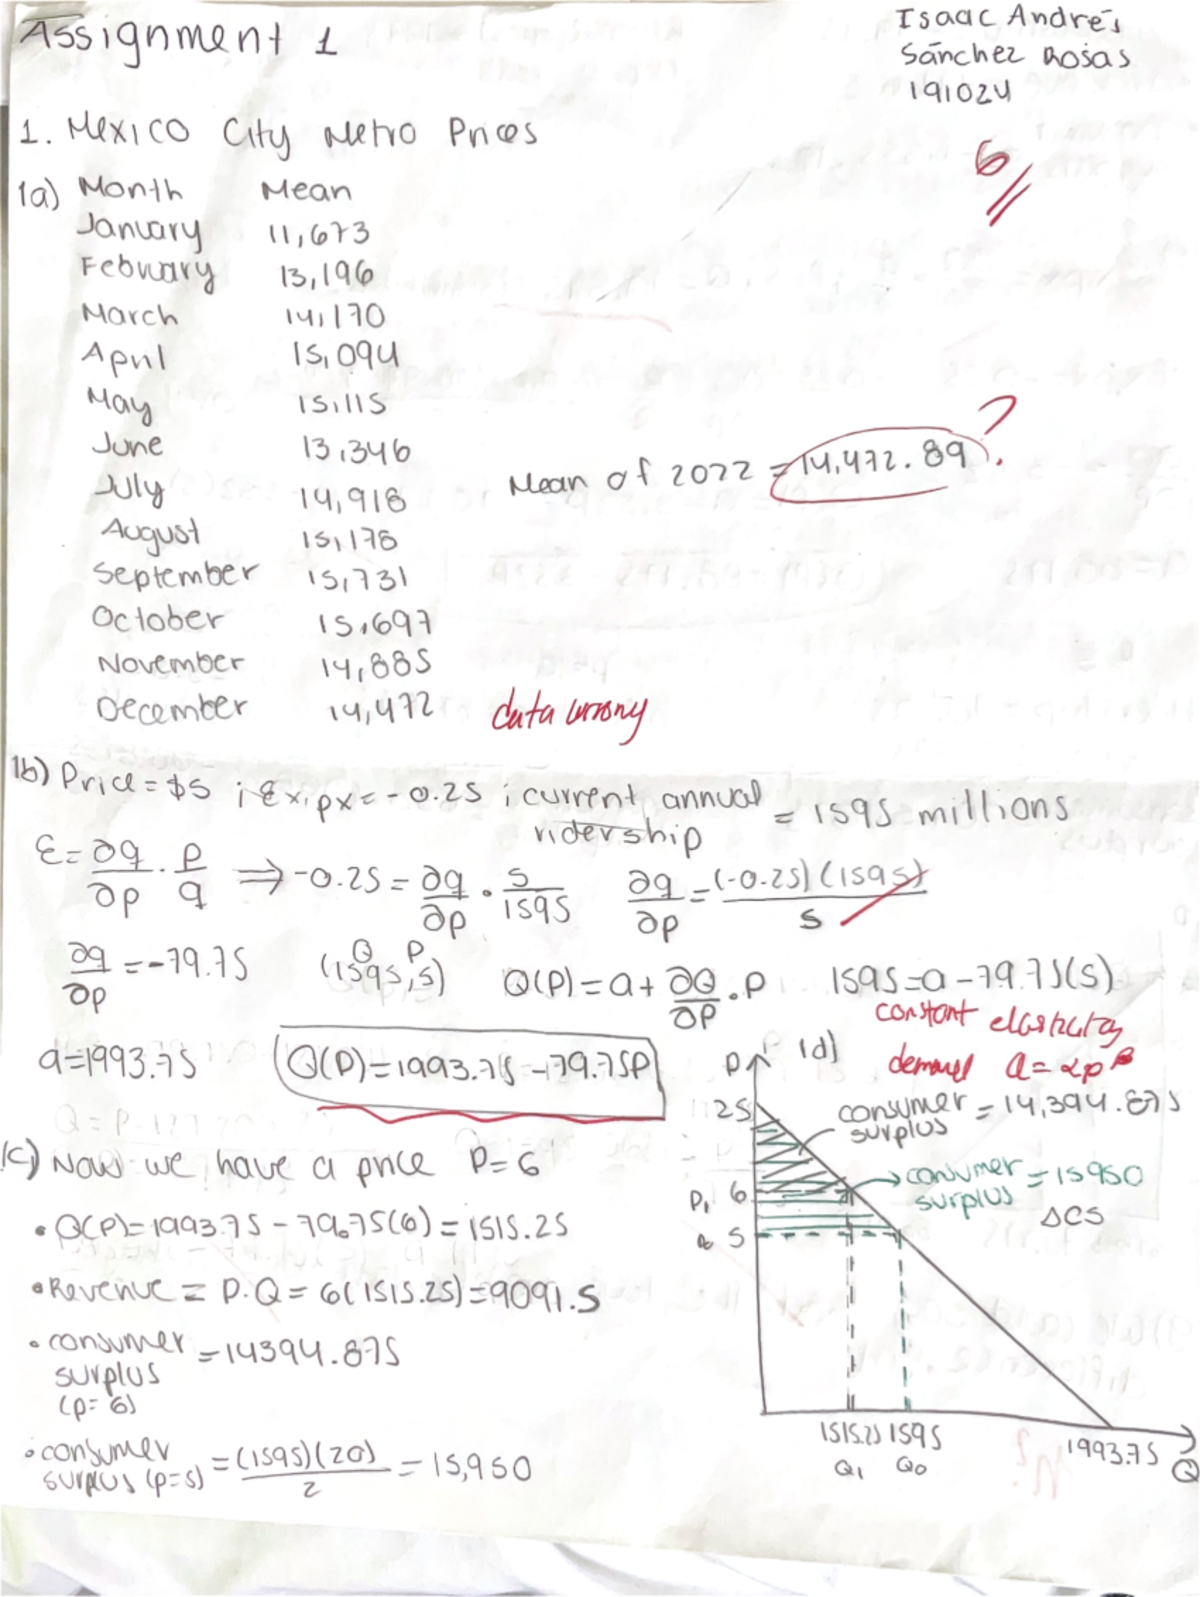 Assignment 1
Isaac Andrés
Sánchez Rosas
191024
6
1. Mexico City Metro Prices
1a) Month Mean
January 11,673
February 13,196
March 14,170
April 15,094
May 15,115
June 13,346
July 14,918
August 15,178
September 15,731
October 15,697
November 14,885
December 14,472
Mean of 2022 = 14,472.89 ?
data wrong
1b) Price = $5 ; εx,px = -0.25 ; current annual ridership = 1595 millions
ε = ∂q/∂p · p/q ⟹ -0.25 = ∂q/∂p · 5/1595 ∂q/∂p = (-0.25)(1595)/5
∂q/∂p = -79.75 (1595,5) Q P Q(P) = a + ∂Q/∂P · P 1595 = a - 79.75(5)
constant elasticity
demand Q = αp^β
a = 1993.75 Q(P) = 1993.75 - 79.75P
1c) Now we have a price P = 6
• Q(P) = 1993.75 - 79.75(6) = 1515.25
• Revenue = P·Q = 6(1515.25) = 9091.5
• consumer surplus (p=6) = 14394.875
• consumer surplus (p=5) = (1595)(20)/2 = 15,950
1d)
P
25
consumer surplus = 14,394.875
consumer surplus = 15950
ΔCS
P1 6
P0 5
1515.25 1595 1993.75
Q1 Q0 Q